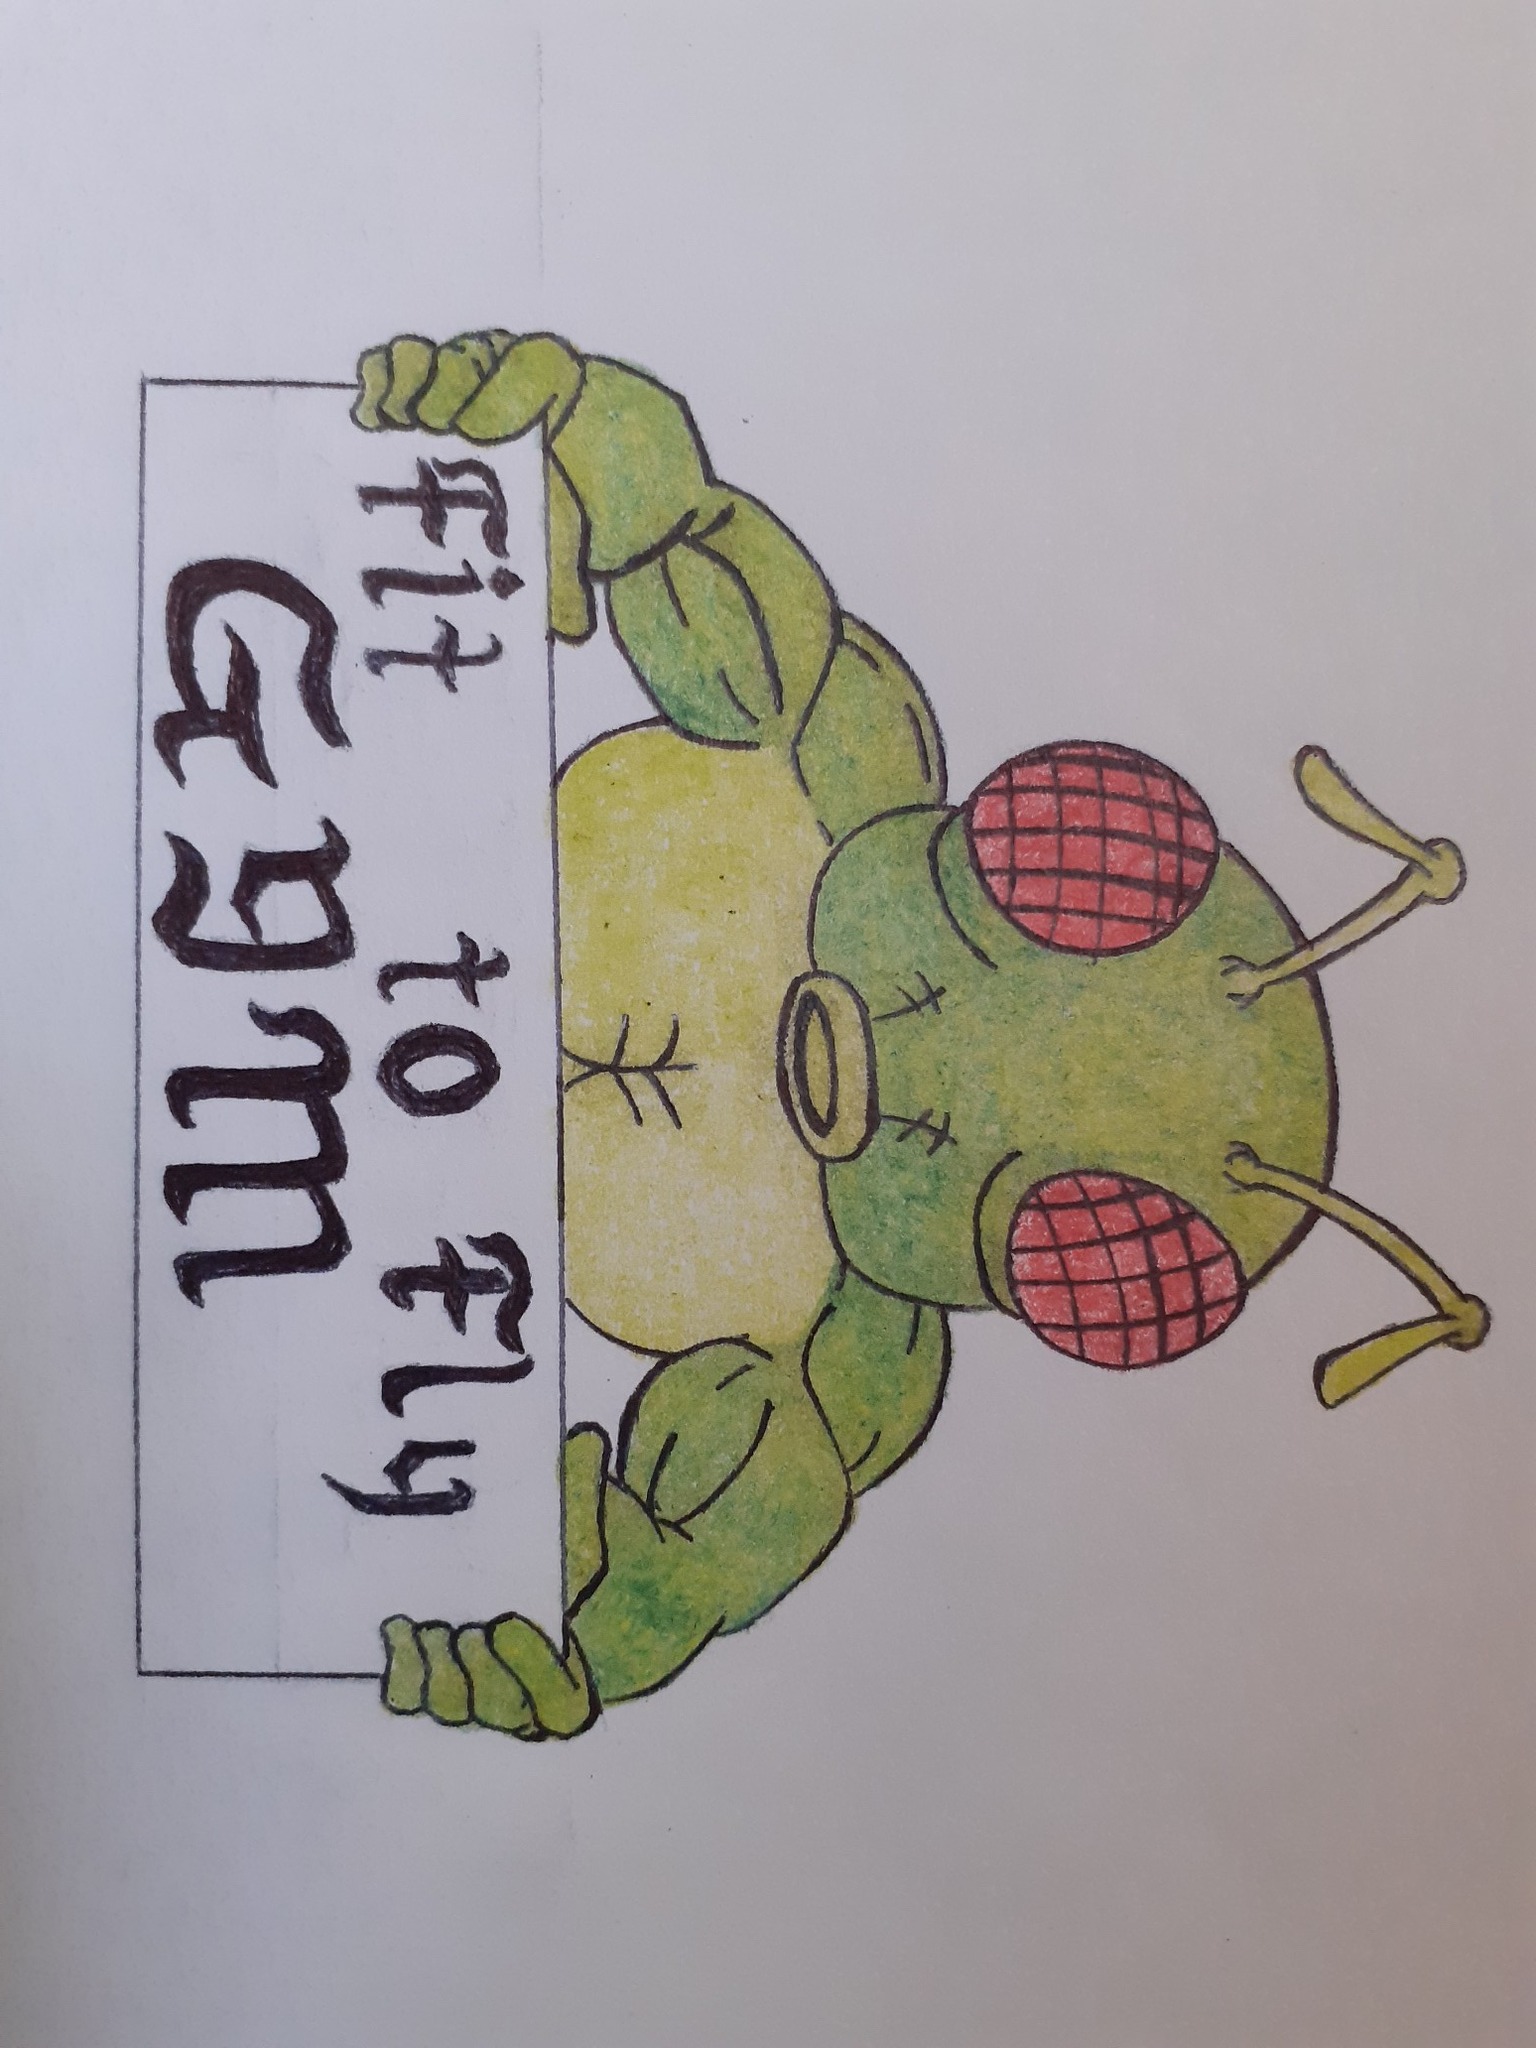 Fit to Fly
Gym